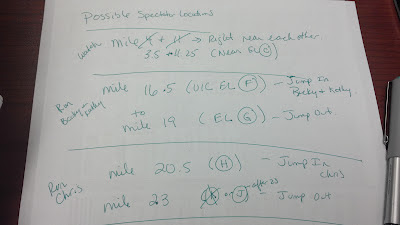 Possible Spectator Locations
Watch Mile 4 + 11 → Right near each other
3.5 + 11.25 (Near EL C)
Run Becky + Kathy
mile 16.5 (UIC EL F) - Jump In
Becky + Kathy
to
mile 19 (EL G) - Jump Out
Run Chris
mile 20.5 (H) - Jump In
Chris
mile 23 or J - after 23 - Jump Out